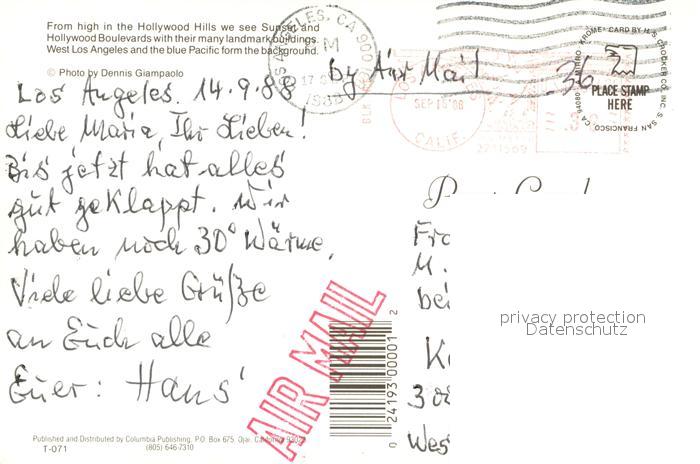 From high in the Hollywood Hills we see Sunset and
Hollywood Boulevards with their many landmark buildings.
West Los Angeles and the blue Pacific form the background.
© Photo by Dennis Giampaolo
by Air Mail
LOS ANGELES, CA 900
1988
SEP 15 '88
CALIF.
KROME® CARD BY H.S. CROCKER CO., INC. SAN FRANCISCO, CA 94080
PLACE STAMP
HERE
Los Angeles. 14.9.88
Liebe Maria, Ihr Lieben!
Bis jetzt hat alles
gut geklappt. Wir
haben noch 30° Wärme.
Viele liebe Grüße
an Euch alle
Euer: Hans'
AIR MAIL
0 24193 00001 2
privacy protection
Datenschutz
Published and Distributed by Columbia Publishing, P.O. Box 675, Ojai, California 93023
T-071
(805) 646-7310